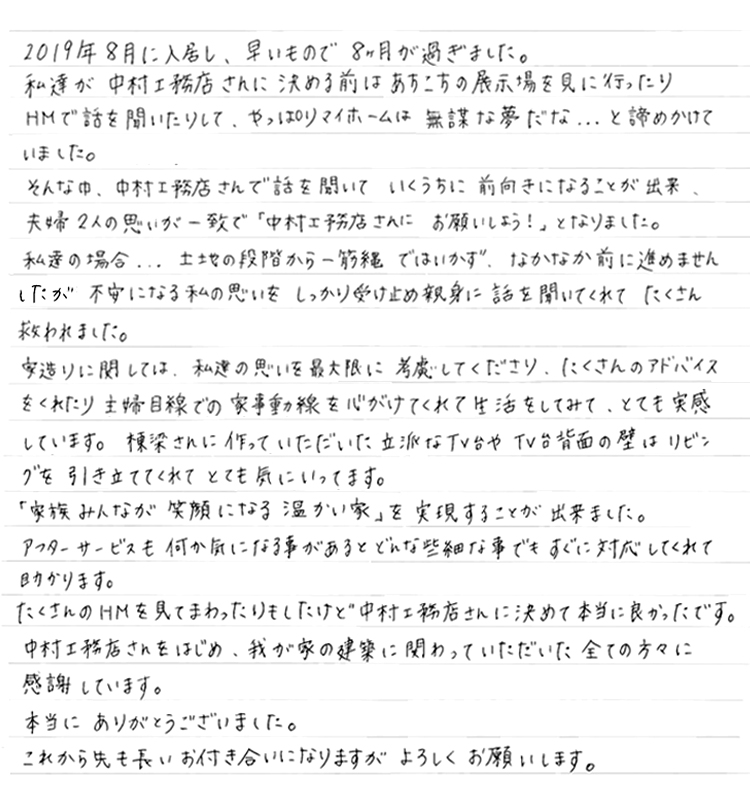 2019年8月に入居し、早いもので 8ヶ月が過ぎました。
私達が 中村工務店さんに 決める前は あちこちの展示場を見に行ったり
HMで話を聞いたりして、やっぱりマイホームは 無謀な夢だな...と諦めかけて
いました。
そんな中、中村工務店さんで話を聞いて いくうちに 前向きになることが出来、
夫婦2人の思いが一致で「中村工務店さんに お願いしよう！」となりました。
私達の場合... 土地の段階から一筋縄 ではいかず、なかなか前に進めません
したが 不安になる私の思いを しっかり受け止め親身に 話を聞いてくれて たくさん
救われました。
家造りに関しては、私達の思いを最大限に 考慮してくださり、たくさんのアドバイス
をくれたり 主婦目線での 家事動線を心がけてくれて生活をしてみて、とても実感
しています。棟梁さんに 作っていただいた 立派なTV台や TV台背面の壁は リビン
グを 引き立ててくれて とても気にいってます。
「家族みんなが 笑顔になる 温かい家」を 実現することが 出来ました。
アフターサービスも 何か気になる事があると どんな些細な事でも すぐに対応してくれて
助かります。
たくさんのHMを見てまわったりもしたけど 中村工務店さんに決めて本当に良かったです。
中村工務店さんをはじめ、我が家の建築に 関わっていただいた 全ての方々に
感謝しています。
本当に ありがとうございました。
これから先も長いお付き合いになりますが よろしくお願いします。